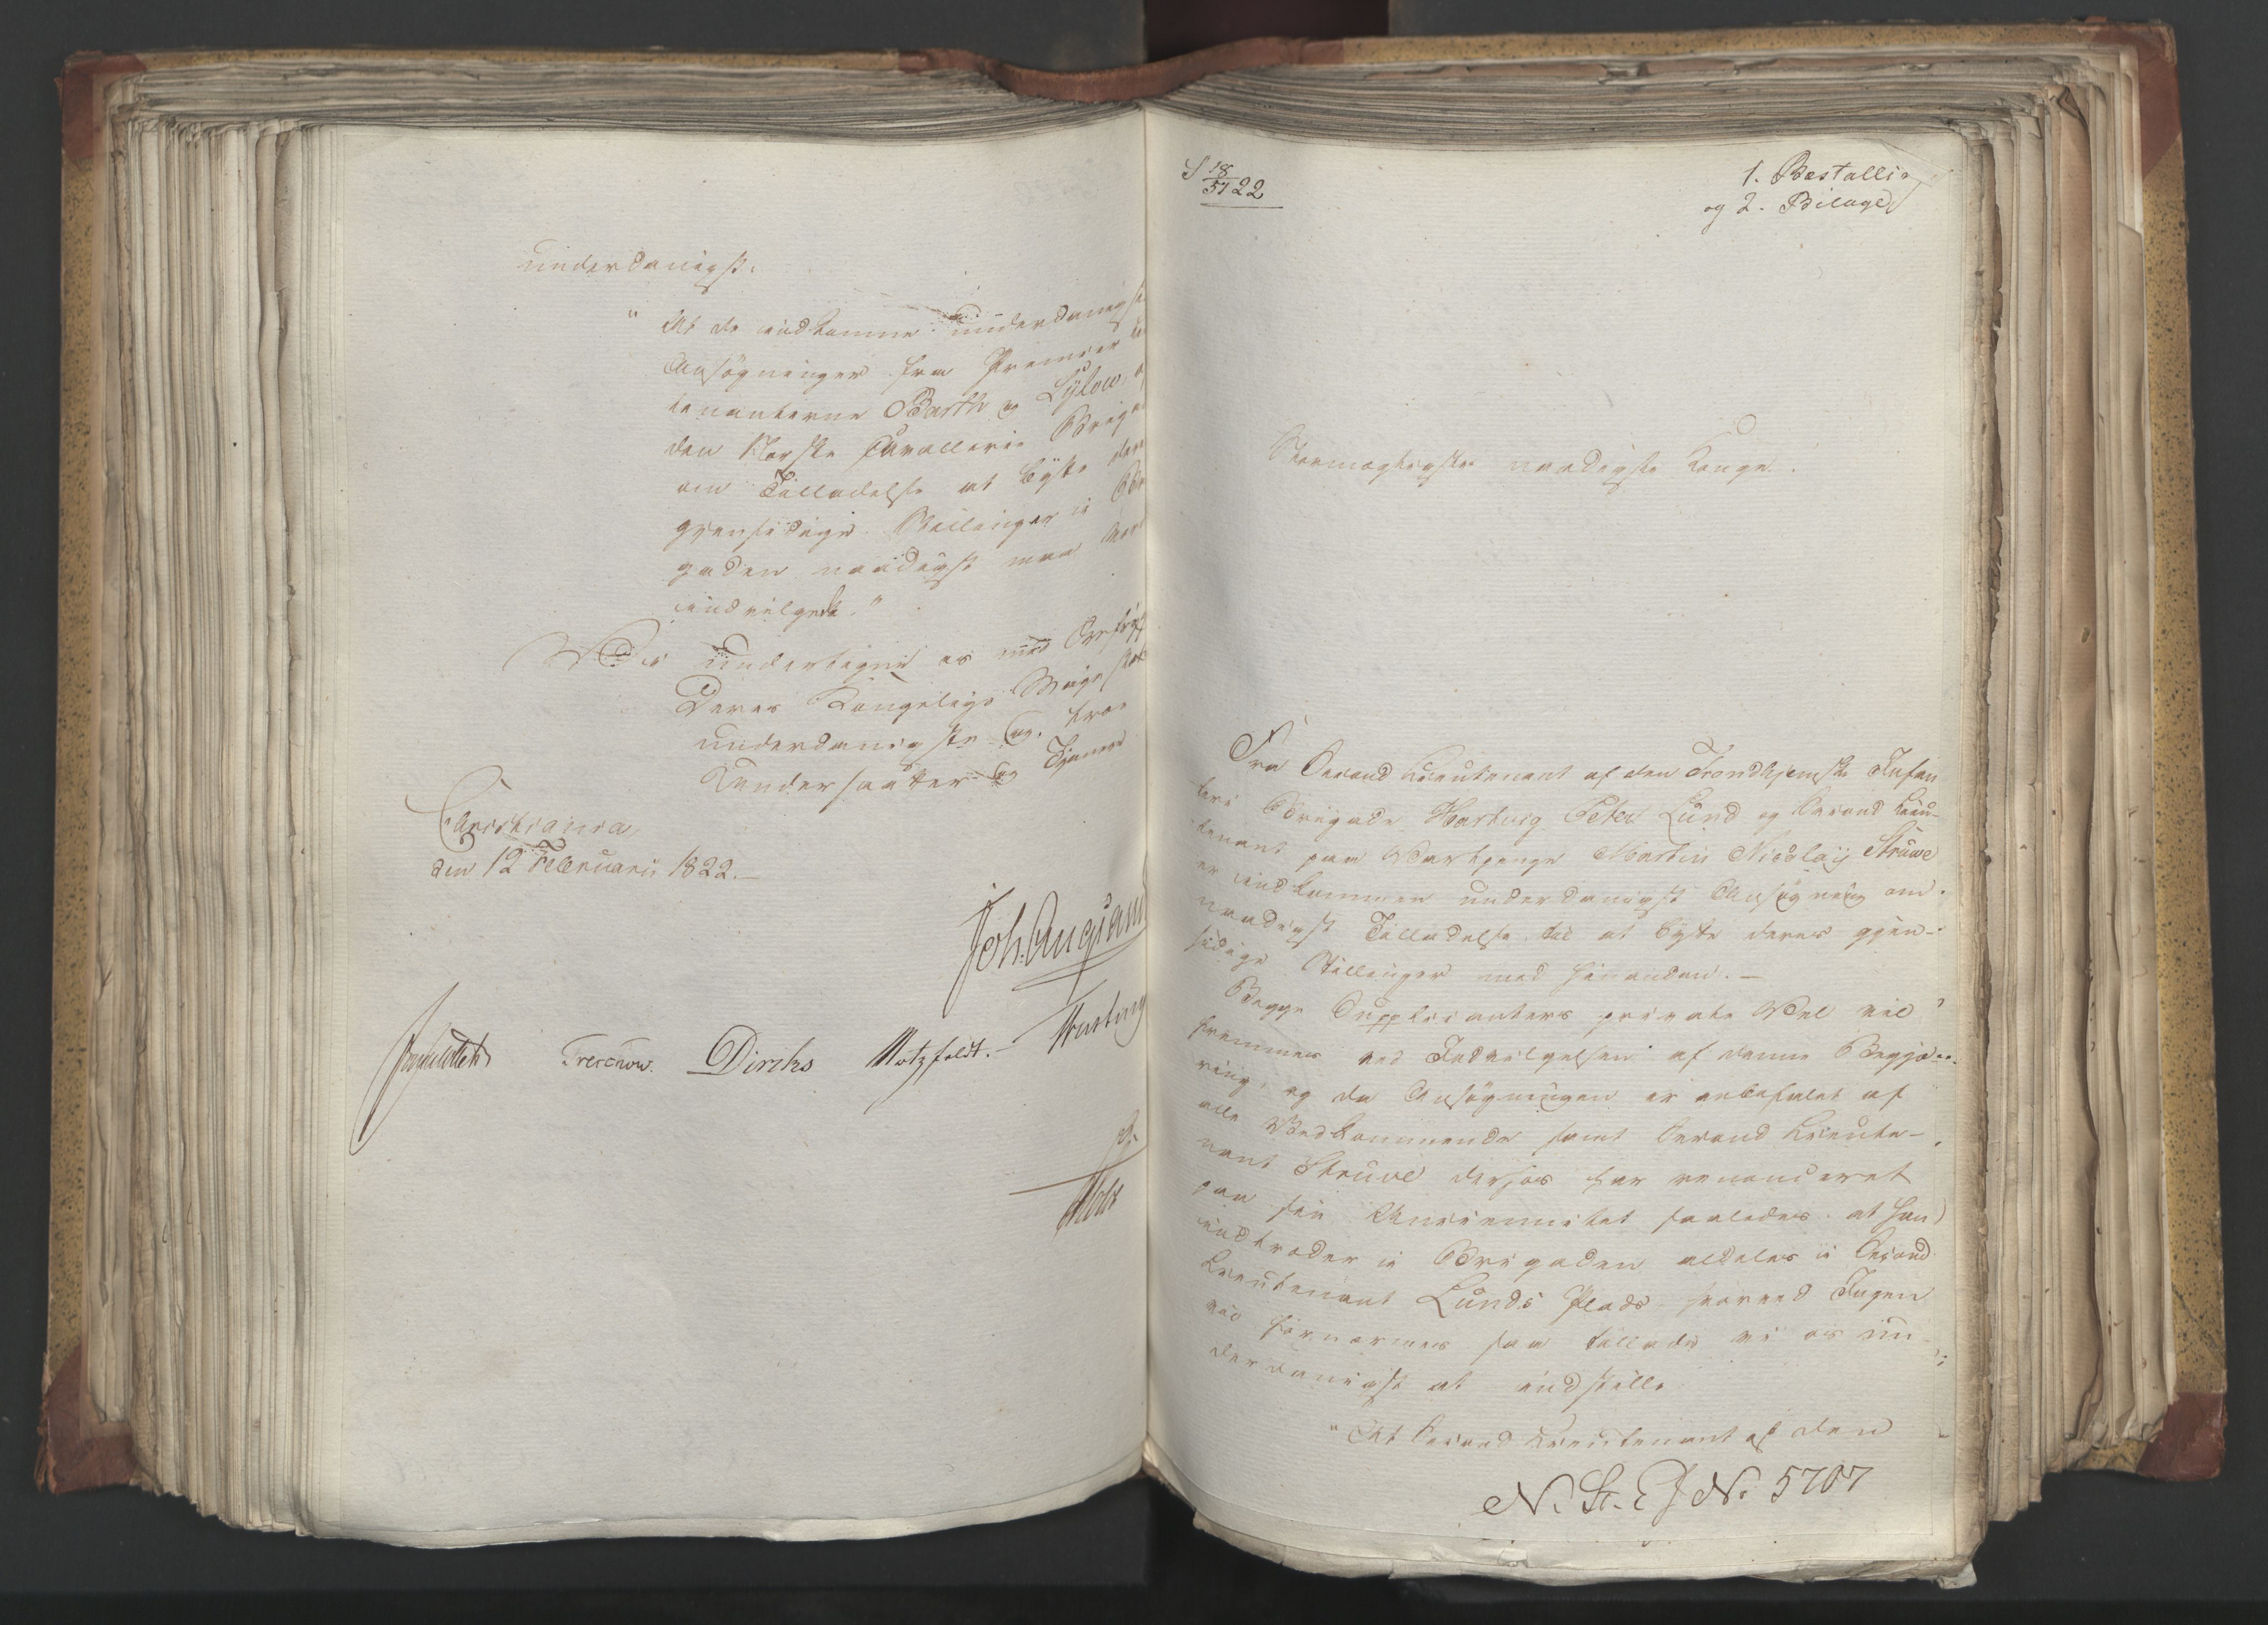 underdanigst:
"At de indkomne underdanigste
Ansøgninger fra Premier Lieu
tenanterne Barth og Lÿtow, af
den Norske Cavallerie Briga
om Tilladelse at bÿtte deres
gjensidige Stillinger i Bri
gaden naadigst maa vor
indvilget."
Vi undertegne os med Ærefrÿgt
Deres Kongelige Majestæts
underdanigste og troe
Undersaatter og Tjenere
Christiania
den 12 Februarii 1822.
Joh: Aug: Sand
Treschow. Diriks Motzfeldt.
Holst
S 18/57 22
1. Bestalling
og 2. Bilage
Stormægtigste naadigste Konge.
Fra Second Lieutenant af den Trondhjemske Infan
teri Brigade Hartvig Peter Lund og Second Lieu-
tenant paa Vartpenge Martin Nicolaÿ Struwe
er indkommen underdanigst Ansøgning om
naadigst Tilladelse til at bÿtte deres gjen-
sidige Stillinger med hinanden. —
Begge Supplicanters private Vel vil
fremmes ved Indvilgelsen af denne Begjæ-
ring, og da Ansøgningen er anbefalet af
alle Vedkommende samt Second Lieute-
nant Struve derhos har renonceret
paa sin Anciennitet saaledes at han
indtræder i Brigaden aldeles i Second
Lieutenant Lunds Plads hvorved Ingen
vil fornærmes saa tillade vi os un-
derdanigst at indstille
"At Second Lieutenant af den
N. St. E J No 5707